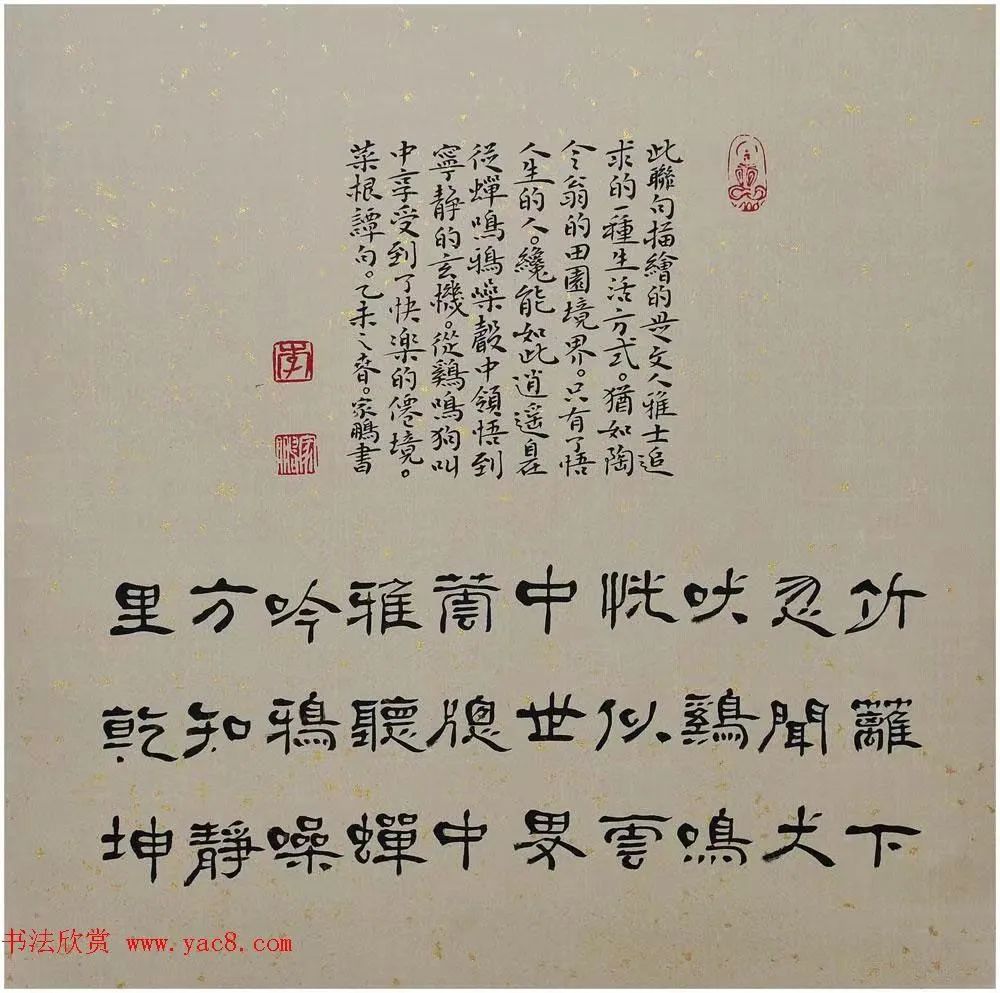 此聯句描繪的是文人雅士追
求的一種生活方式。猶如陶
令翁的田園境界。只有了悟
人生的人。纔能如此逍遥自在
從蟬鳴鴉噪聲中領悟到
寧靜的玄機。從鷄鳴狗叫
中享受到了快楽的僊境。
菜根譚句。乙未之春。家鵬書
李
家鵬
竹籬下
忽聞犬
吠鷄鳴
恍似雲
中世界
蕓牕中
雅聽蟬
吟鴉噪
方知靜
里乾坤
书法欣赏 www.yac8.com